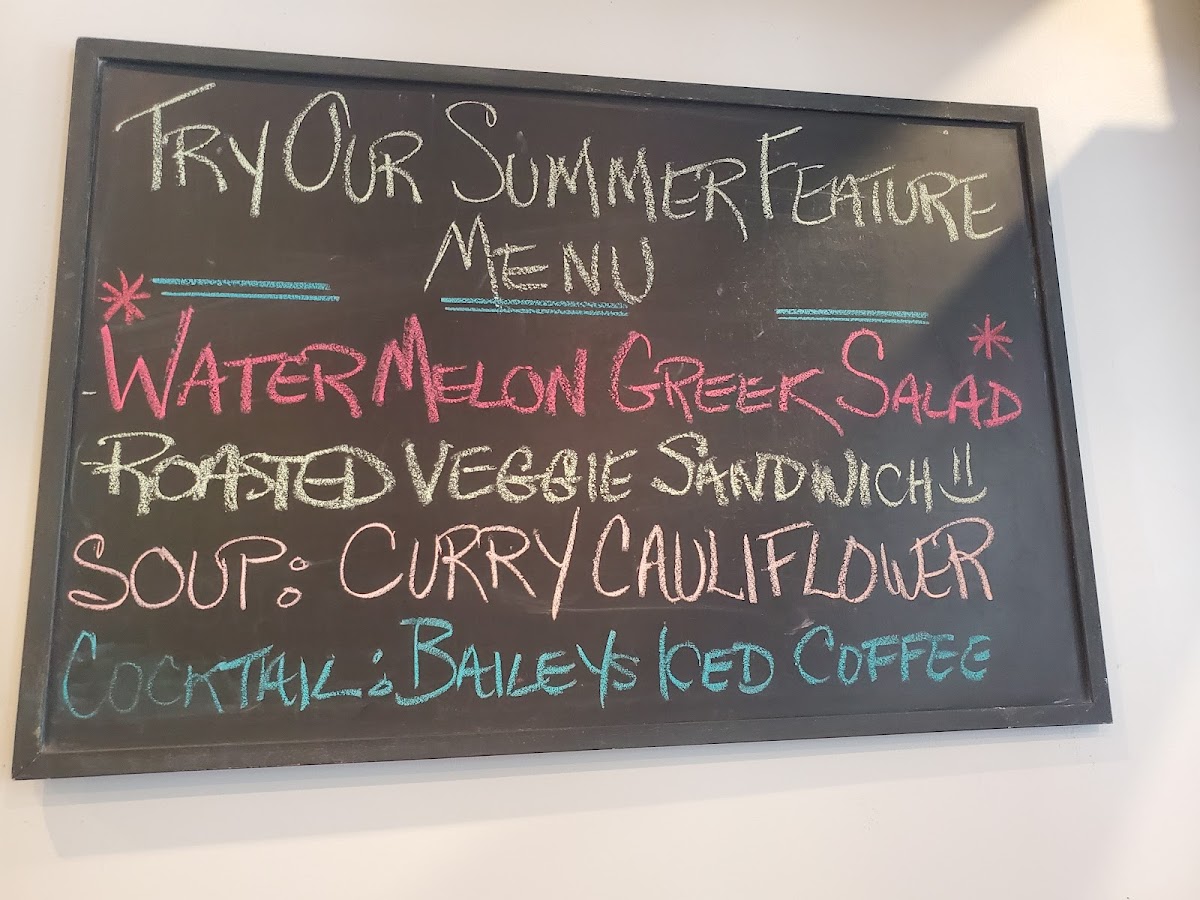 TRY OUR SUMMER FEATURE
MENU
WATERMELON GREEK SALAD
ROASTED VEGGIE SANDWICH
SOUP: CURRY CAULIFLOWER
COCKTAIL: BAILEYS ICED COFFEE